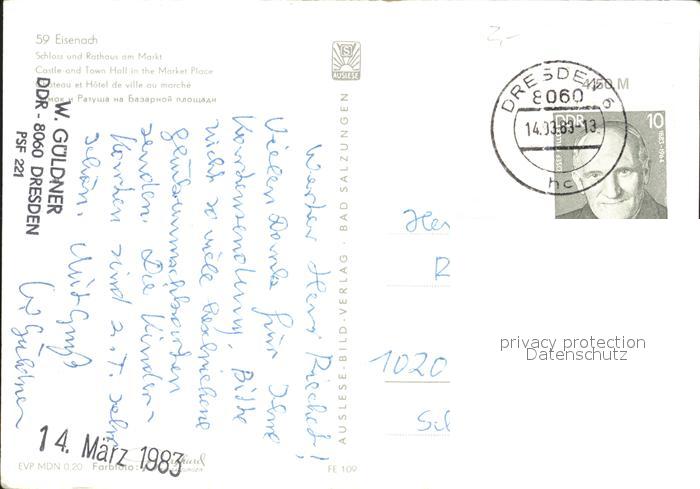 59 Eisenach
Schloss und Rathaus am Markt
Castle and Town Hall in the Market Place
Château et Hôtel de ville au marché
Замок и Ратуша на Базарной площади
W. GÜLDNER
DDR - 8060 DRESDEN
PSF 221
Werter Herr Riechert!
Vielen Dank für Ihre
Kartensendung. Bitte
nicht so viele
Glückwunschkarten
senden. Die Kinder-
karten sind z.T. sehr
schön. Mit Gruß
W Güldner
14. März 1983
EVP MDN 0,20 Farbfoto:
FE 109
AUSLESE-BILD-VERLAG · BAD SALZUNGEN
AUSLESE
2,-
4150 M
DRESDEN 6
8060
14.03.83-13
hc
DDR
10
1883-1964
Her
R
1020
privacy protection
Datenschutz